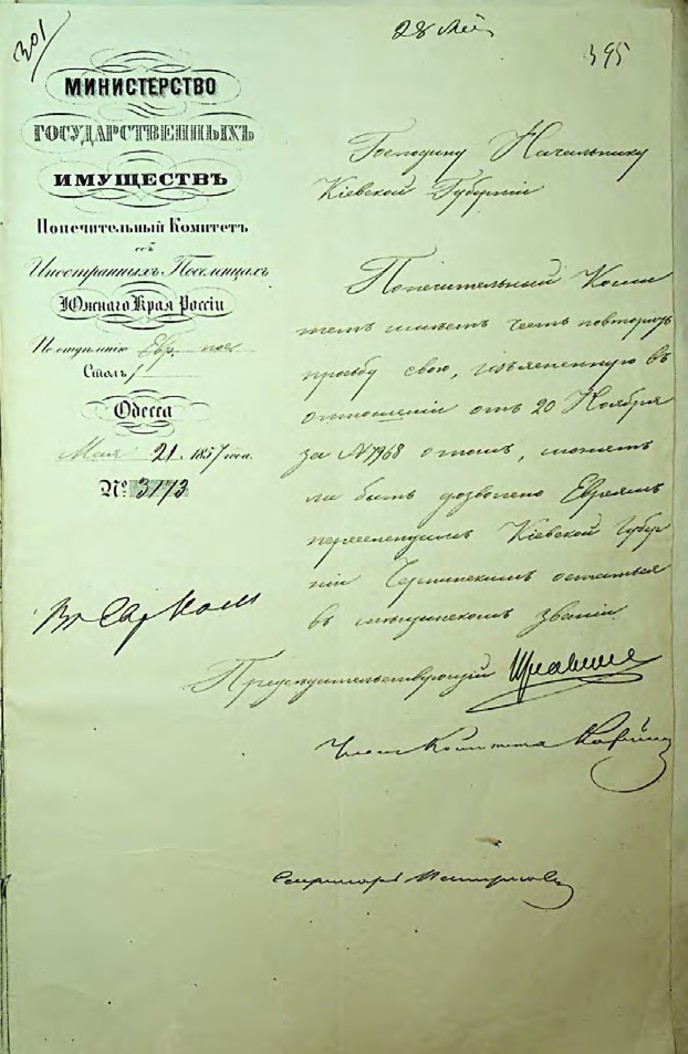 301
28 Мая
395
МИНИСТЕРСТВО
ГОСУДАРСТВЕННЫХЪ
ИМУЩЕСТВЪ
Попечительный Комитетъ
объ
Иностранныхъ Поселенцахъ
Южнаго Края Россіи
По отдѣленію Евр. пос
Столъ 1
Одесса
Мая 21. 1857 года.
№ 3173
Господину Начальнику
Кіевской Губерніи
Попечительный Коми
тетъ имѣетъ честь повторить
просьбу свою, изъясненную въ
отношеніи отъ 20 Ноября
за № 7968 о томъ, можетъ
ли быть дозволено Евреямъ
переселенцамъ Кіевской Губер
ніи остаться
въ мѣщанскомъ званіи
Предсѣдательствующій
Членъ Комитета
Секретарь